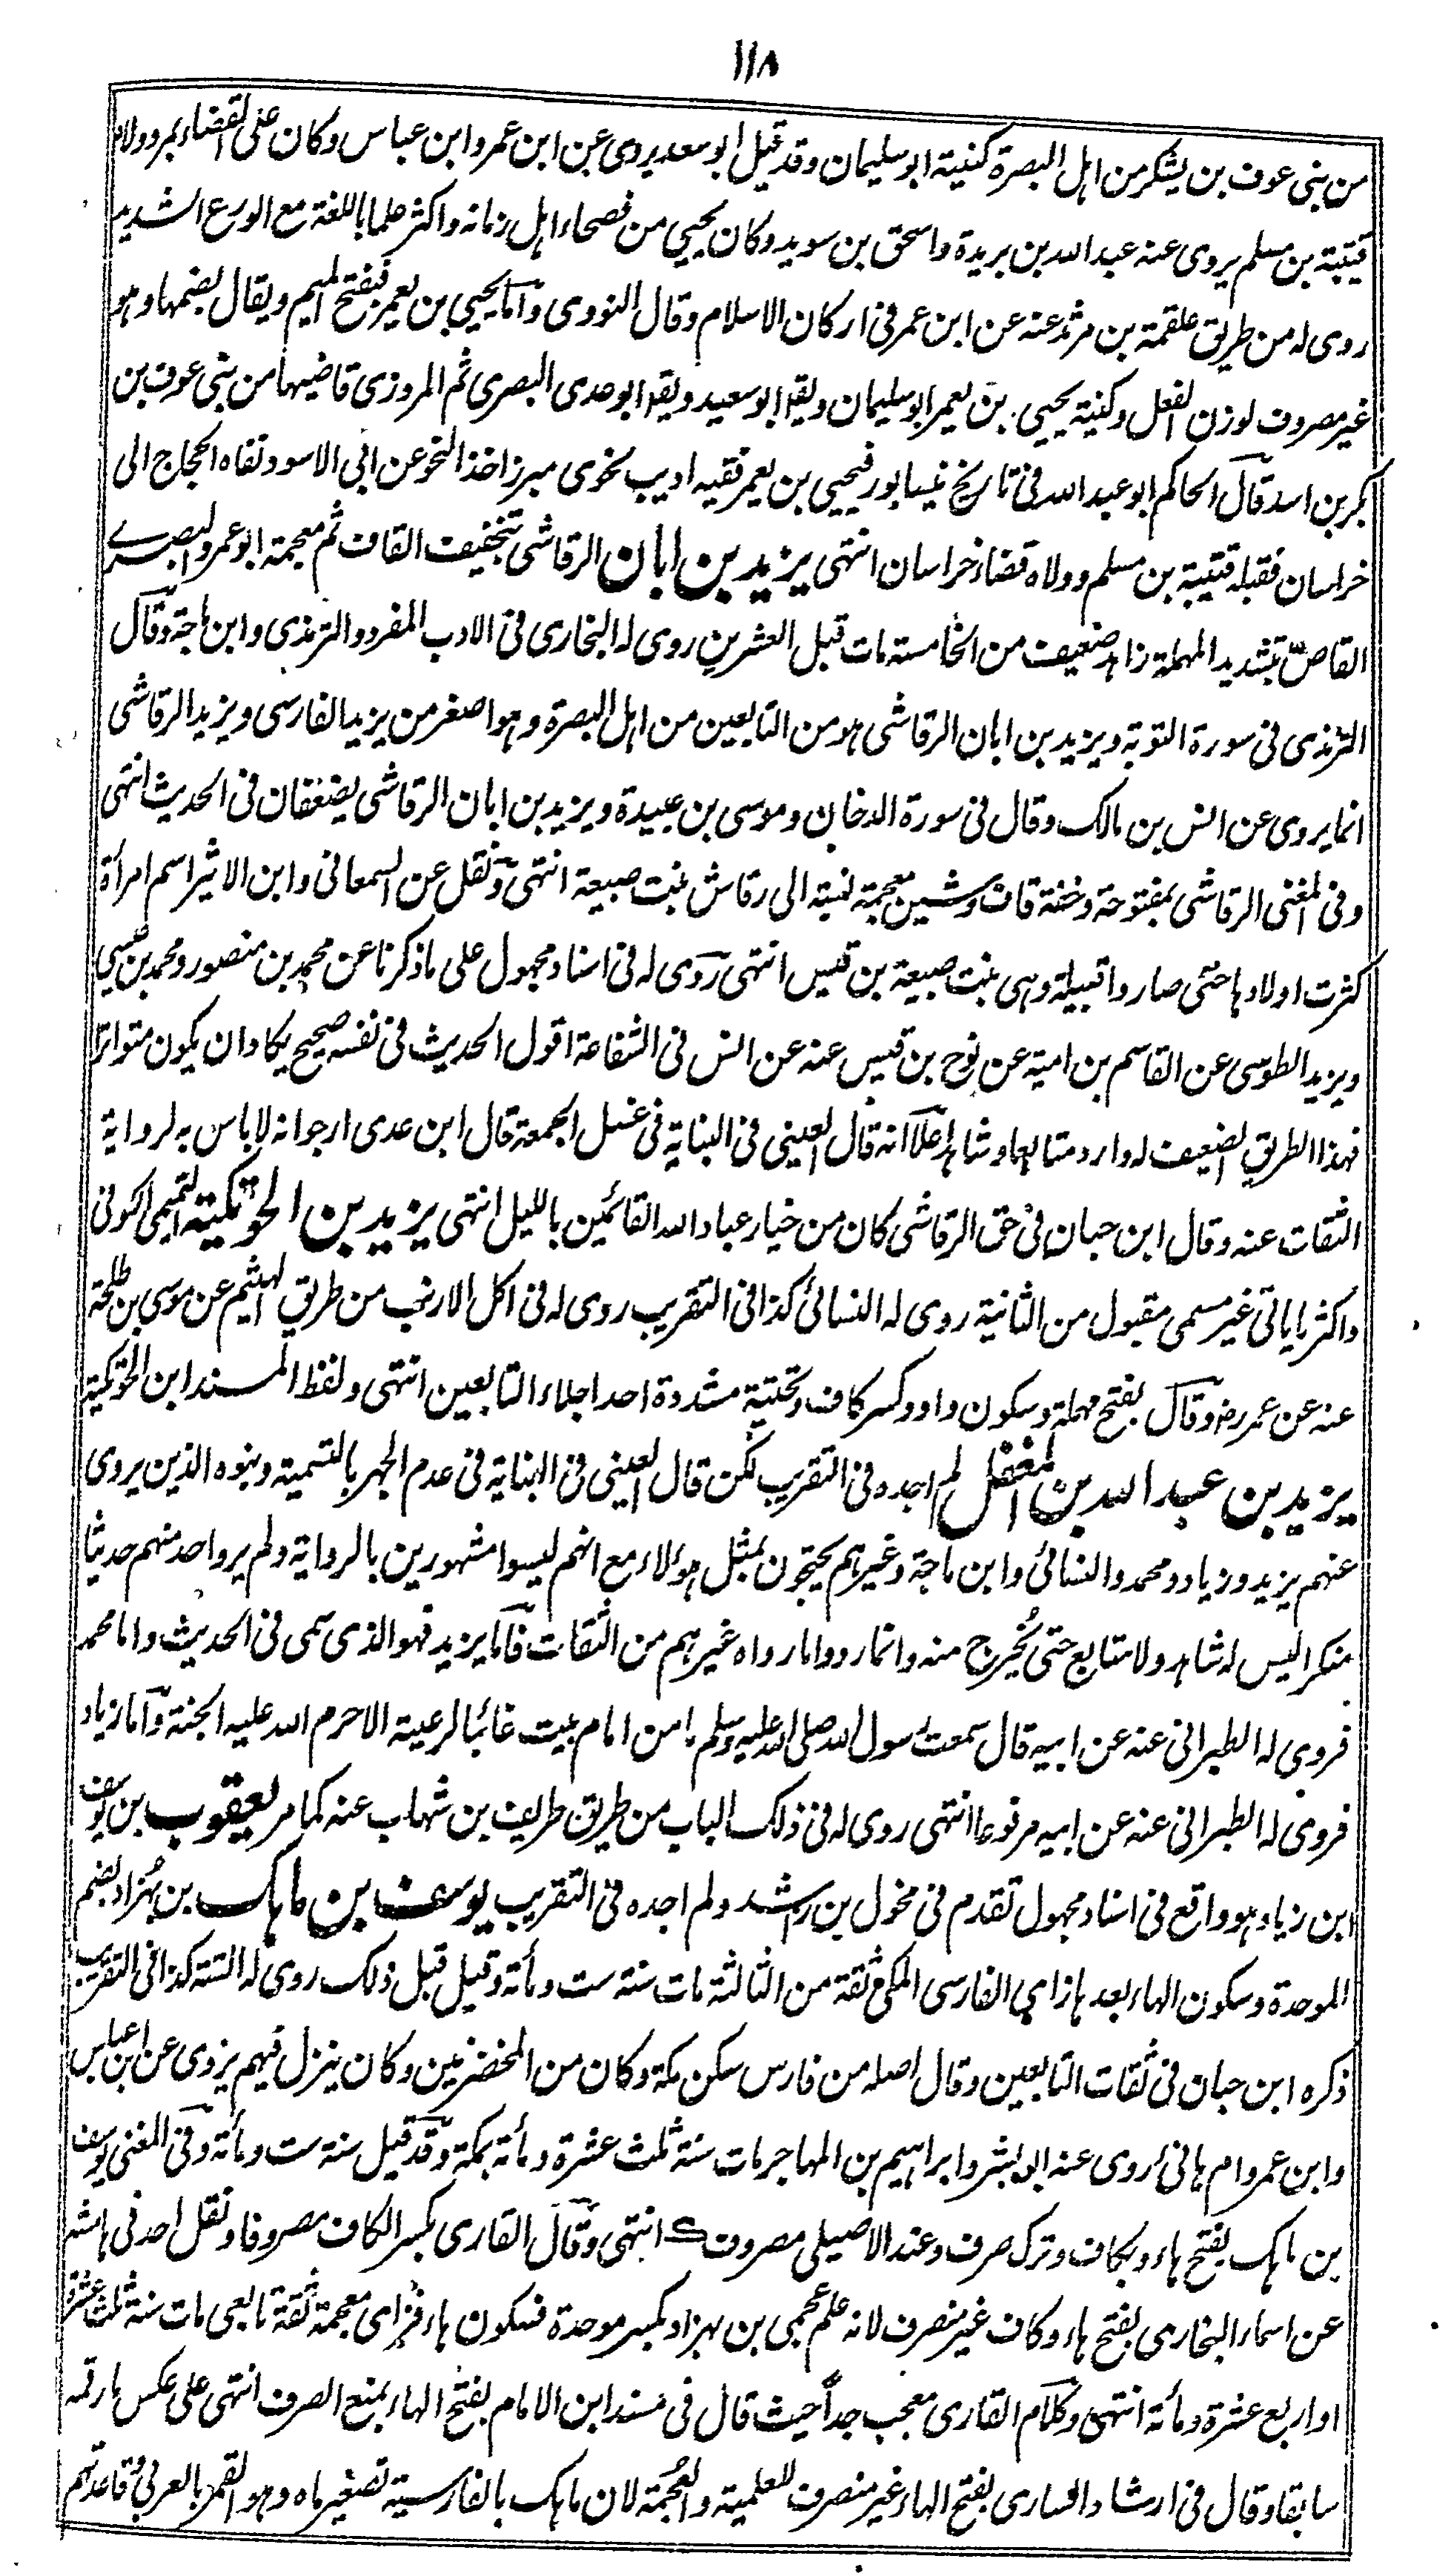 ١١٨
من بنى عوف بن يشكر من اهل البصرة كنيته ابو سليمان وقد قيل ابو سعد يروى عن ابن عمر وابن عباس وكان على القضاء بمرو ولاه
قتيبة بن مسلم يروى عنه عبد الله بن بريدة واسحق بن سويد وكان يحيى من فصحاء اهل زمانه واكثر علما باللغة مع الورع الشديد
روى له من طريق علقمة بن مرثد عنه عن ابن عمر فى اركان الاسلام وقال النووى واما يحيى بن يعمر فبفتح الميم ويقال بضمها وهو
غير مصروف لوزن الفعل وكنية يحيى بن يعمر ابو سليمان ويقه ابو سعيد ويقه ابو عدى البصرى ثم المروزى قاضيها من بنى عوف بن
بكر بن اسد قال الحاكم ابو عبد الله فى تاريخ نيسابور فيحيى بن يعمر فقيه اديب نحوى مبرز اخذ النحو عن ابى الاسود نفاه الحجاج الى
خراسان فقبله قتيبة بن مسلم وولاه قضاء خراسان انتهى يزيد بن ابان الرقاشى بتخفيف القاف ثم معجمة ابو عمرو البصرى
القاص بتشديد المهملة زاهد ضعيف من الخامسة مات قبل العشرين روى له البخارى فى الادب المفرد والترمذى وابن ماجة وقال
الترمذى فى سورة التوبة ويزيد بن ابان الرقاشى هو من التابعين من اهل البصرة وهو اصغر من يزيد الفارسى ويزيد الرقاشى
انما يروى عن انس بن مالك وقال فى سورة الدخان وموسى بن عبيدة ويزيد بن ابان الرقاشى يضعفان فى الحديث انتهى
وفى المغنى الرقاشى بمفتوحة وخفة قاف وشين معجمة نسبة الى رقاش بنت ضبيعة انتهى ونقل عن السمعانى وابن الاثير اسم امرأة
كثرت اولادها حتى صاروا قبيلة وهى بنت ضبيعة بن قيس انتهى روى له فى اسناد مجهول على ما ذكرنا عن محمد بن منصور ومحمد بن عيسى
ويزيد الطوسى عن القاسم بن امية عن نوح بن قيس عنه عن انس فى الشفاعة اقول الحديث فى نفسه صحيح يكاد ان يكون متواترا
فهذا الطريق الضعيف له وارد متابعا وشاهدا علا انه قال العينى فى البناية فى غسل الجمعة قال ابن عدى ارجو انه لا باس به لرواية
الثقات عنه وقال ابن حبان فى حق الرقاشى كان من خيار عباد الله القائمين بالليل انتهى يزيد بن الحوتكية التميمى الكوفى
واكثر ما ياتى غير مسمى مقبول من الثانية روى له النسائى كذا فى التقريب روى له فى اكل الارنب من طريق الهيثم عن موسى بن طلحة
عنه عن عمر رض وقال بفتح مهملة وسكون واو وكسر كاف وتحتية مشددة احد اجلاء التابعين انتهى ولفظ المسند ابن الحوتكية
يزيد بن عبد الله بن المغفل لم اجده فى التقريب لكن قال العينى فى البناية فى عدم الجهر بالتسمية وبنوه الذين يروى
عنهم يزيد وزياد ومحمد والنسائى وابن ماجة وغيرهم يحتجون بمثل هؤلاء مع انهم ليسوا مشهورين بالرواية ولم يرو احد منهم حديثا
منكرا ليس له شاهد ولا متابع حتى يخرج منه وانما رووا ما رواه غيرهم من الثقات فاما يزيد فهو الذى سمى فى الحديث واما محمد
فروى له الطبرانى عنه عن ابيه قال سمعت رسول الله صلى الله عليه وسلم ما من امام يبيت غائبا لرعيته الا حرم الله عليه الجنة واما زياد
فروى له الطبرانى عنه عن ابيه مرفوعا انتهى روى له فى ذلك الباب من طريق طريف بن شهاب عنه كما مر يعقوب بن يوسف
ابن زياد هو واقع فى اسناد مجهول تقدم فى مخول بن راشد ولم اجده فى التقريب يوسف بن ماهك بن بهزاد بضم
الموحدة وسكون الهاء بعدها زاى الفارسى المكى ثقة من الثالثة مات سنة ست ومأة وقيل قبل ذلك روى له الستة كذا فى التقريب
ذكره ابن حبان فى ثقات التابعين وقال اصله من فارس سكن مكة وكان من المخضرمين وكان ينزل فيهم يروى عن ابن عباس
وابن عمر وام هانئ روى عنه ابو بشر وابراهيم بن المهاجر مات سنة ثلث عشرة ومأة بمكة وقد قيل سنة ست ومأة وفى المغنى يوسف
بن ماهك بفتح هاء وبكاف وترك صرف وعند الاصيلى مصروف ك انتهى وقال القارى بكسر الكاف مصروفا ونقل احد فى هامشه
عن اسماء البخارى بفتح هاء وكاف غير منصرف لانه علم عجمى بن بهزاد بكسر موحدة فسكون هاء فزاى معجمة ثقة تابعى مات سنة ثلث عشرة
او اربع عشرة ومأة انتهى وكلام القارى معجب جدا حيث قال فى مسند ابن الامام بفتح الهاء بمنع الصرف انتهى على عكس ما رقمه
سابقا وقال فى ارشاد السارى بفتح الهاء غير منصرف للعلمية والعجمة لان ماهك بالفارسية تصغير ماه وهو القمر بالعربى وقاعدتهم